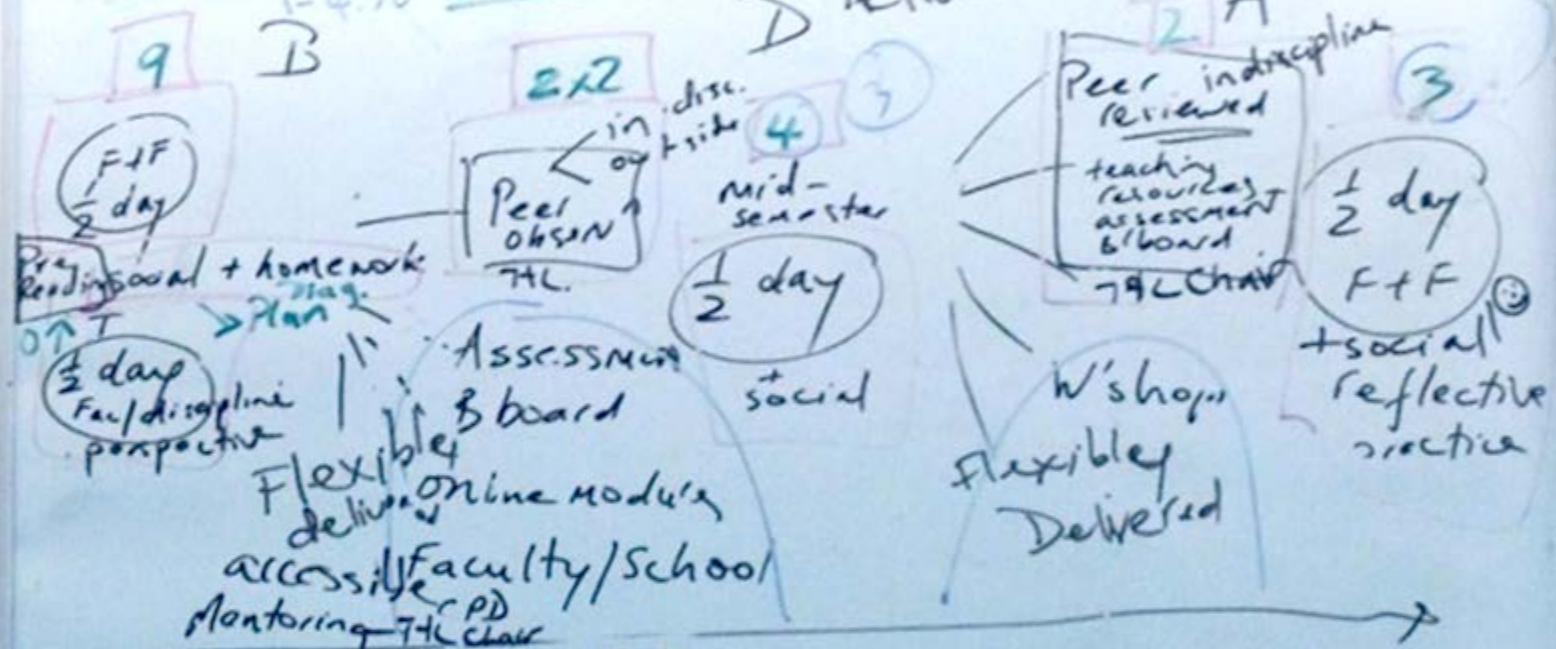 9
B
F+F
1/2 day
Pre
Reading
social + homework
Plan
1/2 day
Fac/discipline
perspective
2x2
in disc.
outside
Peer
obsen
T+L.
Assessment
Bboard
Flexibly
delivered
online modules
accessible
Faculty/School
Mentoring
PD
T+L Chair
D
4
mid-
semester
1/2 day
+
social
2
A
Peer in discipline
reviewed
teaching
resources
assessment
B/board
T+L Chair
W'shops
Flexibley
Delivered
3
1/2 day
F+F
+social
reflective
practice